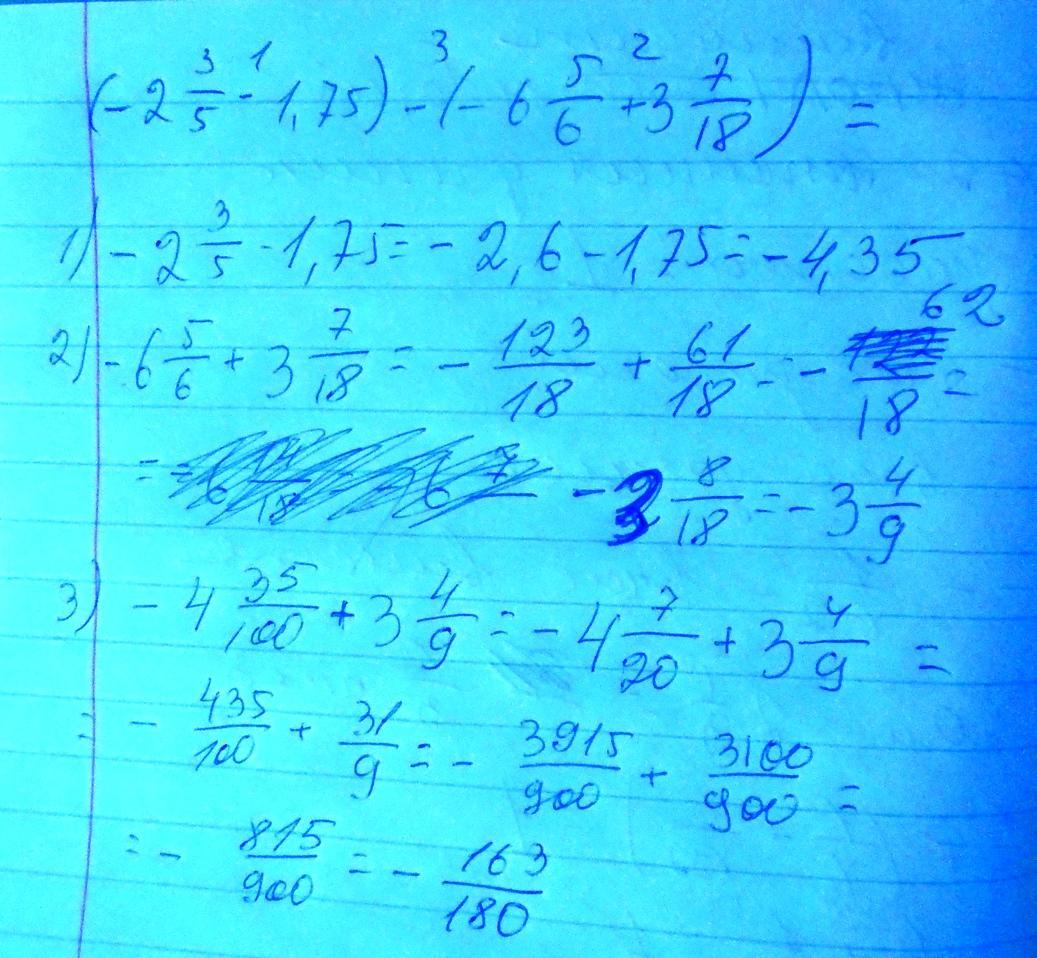 (-2 3/5 - 1,75) - (-6 5/6 + 3 7/18) =
1 3 2
1) -2 3/5 - 1,75 = -2,6 - 1,75 = -4,35
2) -6 5/6 + 3 7/18 = - 123/18 + 61/18 = - 62/18 =
= - 3 8/18 = -3 4/9
3) -4 35/100 + 3 4/9 = -4 7/20 + 3 4/9 =
= - 435/100 + 31/9 = - 3915/900 + 3100/900 =
= - 815/900 = - 163/180